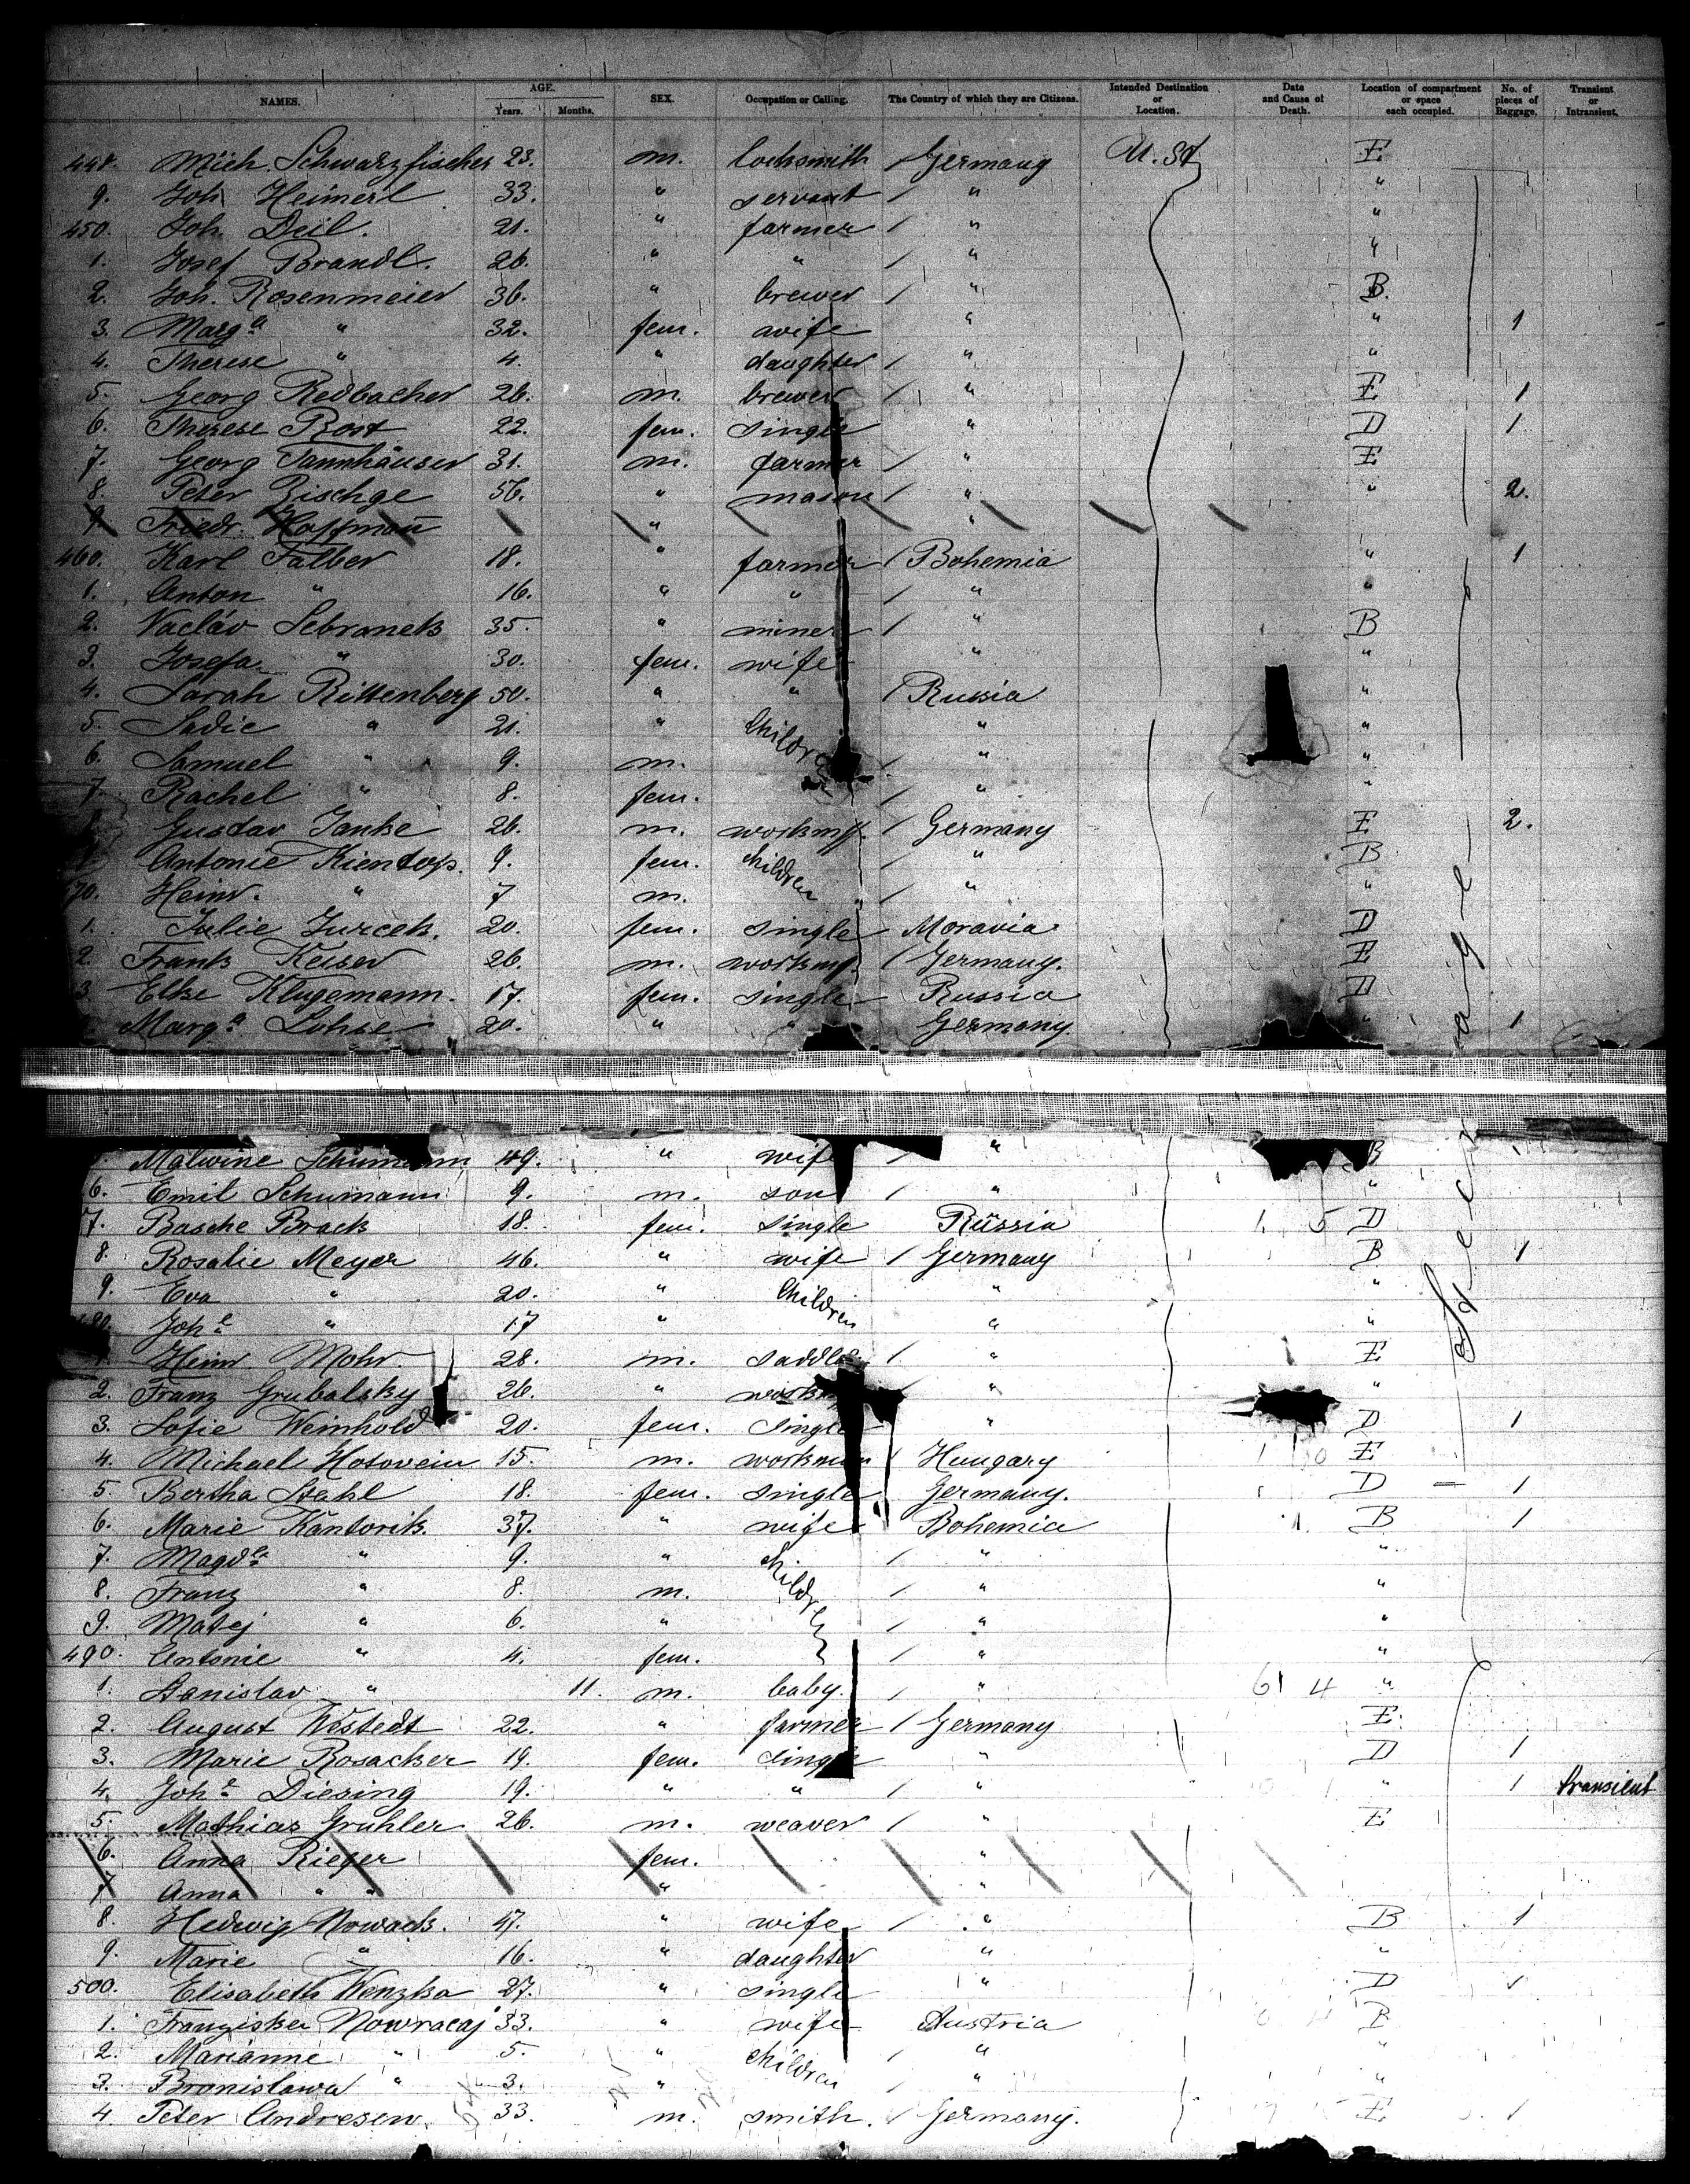 NAMES. AGE. Years. Months. SEX. Occupation or Calling. The Country of which they are Citizens. Intended Destination or Location. Date and Cause of Death. Location of compartment or space each occupied. No. of pieces of Baggage. Transient or Intransient.
448. Mich. Schwarzfischer 23. m. locksmith / Germany U. St E
9. Joh. Heimerl 33. " servant / " "
450. Joh. Deil. 21. " farmer / " "
1. Josef Brandl. 26. " " / " "
2. Joh. Rosenmeier 36. " brewer / " B.
3. Marg.a " 32. fem. wife " " 1
4. Therese " 4. " daughter / " "
5. Georg Redbacher 26. m. brewer / " E 1
6. Therese Rost 22. fem. single " D 1
7. Georg Tannhäuser 31. m. farmer / " E
8. Peter Zischge 56. " mason / " " 2.
9. Friedr. Hoffman̄ " "
460. Karl Falber 18. " farmer / Bohemia " 1
1. Anton " 16. " " / " "
2. Vacláv Sebranek 35. " miner / " B
3. Josefa " 30. fem. wife " "
4. Sarah Rittenberg 50. " " / Russia "
5. Sadie " 21. " Children " "
6. Samuel " 9. m. / " "
7. Rachel " 8. fem. / " "
Gustav Janke 26. m. workm. / Germany E 2.
Antonie Kientop. 9. fem. children / " B
70. Heinr. " 7 m. / " "
1. Julie Jurcek. 20. fem. single Moravia D
2. Frank Keiser 26. m. workm. / Germany. E
3. Elke Klugemann. 17. fem. single Russia D
Marg.a Lohse 20. " " Germany " 1
Steerage
Malwine Schumann 49. " wife / " B
6. Emil Schumann 9. m. son / " "
7. Basche Brack 18. fem. single Russia 1 5 D
8. Rosalie Meyer 46. " wife / Germany B 1
9. Eva " 20. " Children " "
Joh.e " 17 " " "
Heinr Mohr. 28. m. saddler / " E
2. Franz Grubalsky 26. " workm " "
3. Sofie Weinhold 20. fem. single " D 1
4. Michael Hosovein 15. m. workman / Hungary E
5 Bertha Stahl 18. fem. single Germany. D — 1
6. Marie Kantorik. 37. " wife Bohemia 1. B 1
7. Magd.e " 9. " children / " "
8. Franz " 8. m. / " "
9. Matej " 6. " / " "
490. Antonie " 4. fem. / " "
1. Stanislav " 11. m. baby. / " 61 4 "
2. August Westedt 22. " farmer / Germany E.
3. Marie Rosacker 19. fem. single " D 1
4. Joh.e Diesing 19. " " / " " 1 transient
5. Mathias Gruhler 26. m. weaver / " E
6. Anna Rieger fem. "
7 Anna " " " "
8. Hedwig Nowack. 47. " wife / " B 1
9. Marie " 16. " daughter " "
500. Elisabeth Wenzka 27. " single " D 1
1. Franziska Nowracaj 33. " wife Austria B
2. Marianne " 5. " children / " "
3. Bronislawa " 3. " / " "
4. Peter Andresen. 33. m. smith. / Germany. E 1